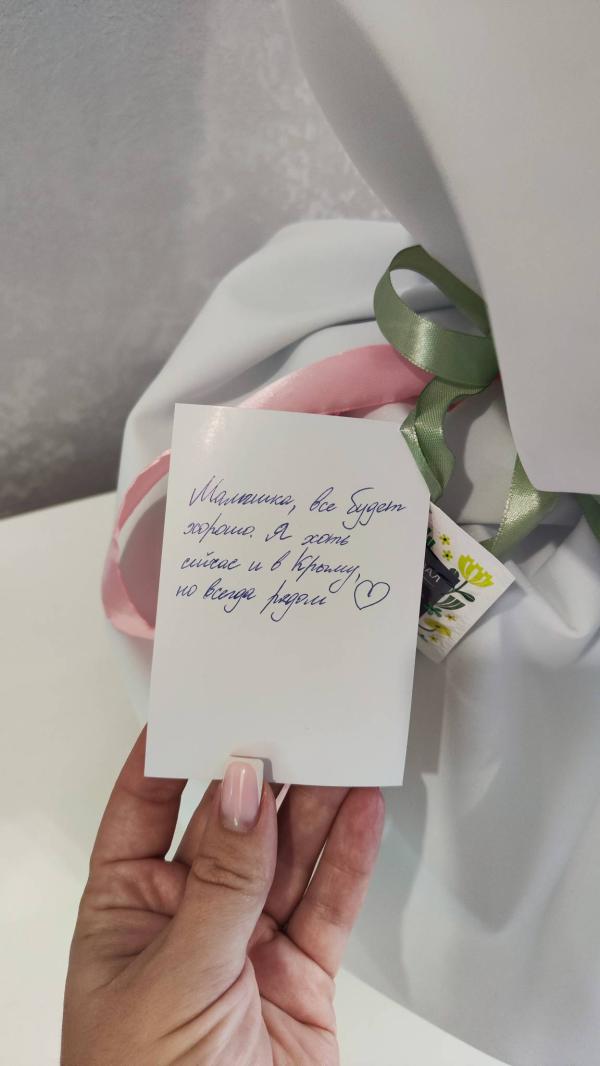 Малышка, все будет
хорошо. Я хоть
сейчас и в Крыму,
но всегда рядом ♡